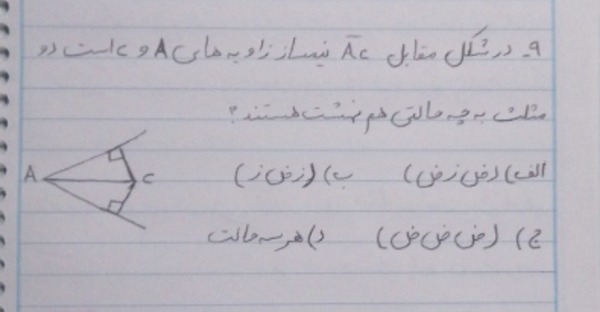 ۹ـ در شکل مقابل AC نیمساز زاویه های A و C است دو
مثلث به چه حالتی هم نهشت هستند؟
الف) (ض ز ض) ب) (ز ض ز)
ج) (ض ض ض) د) هر سه حالت
A C